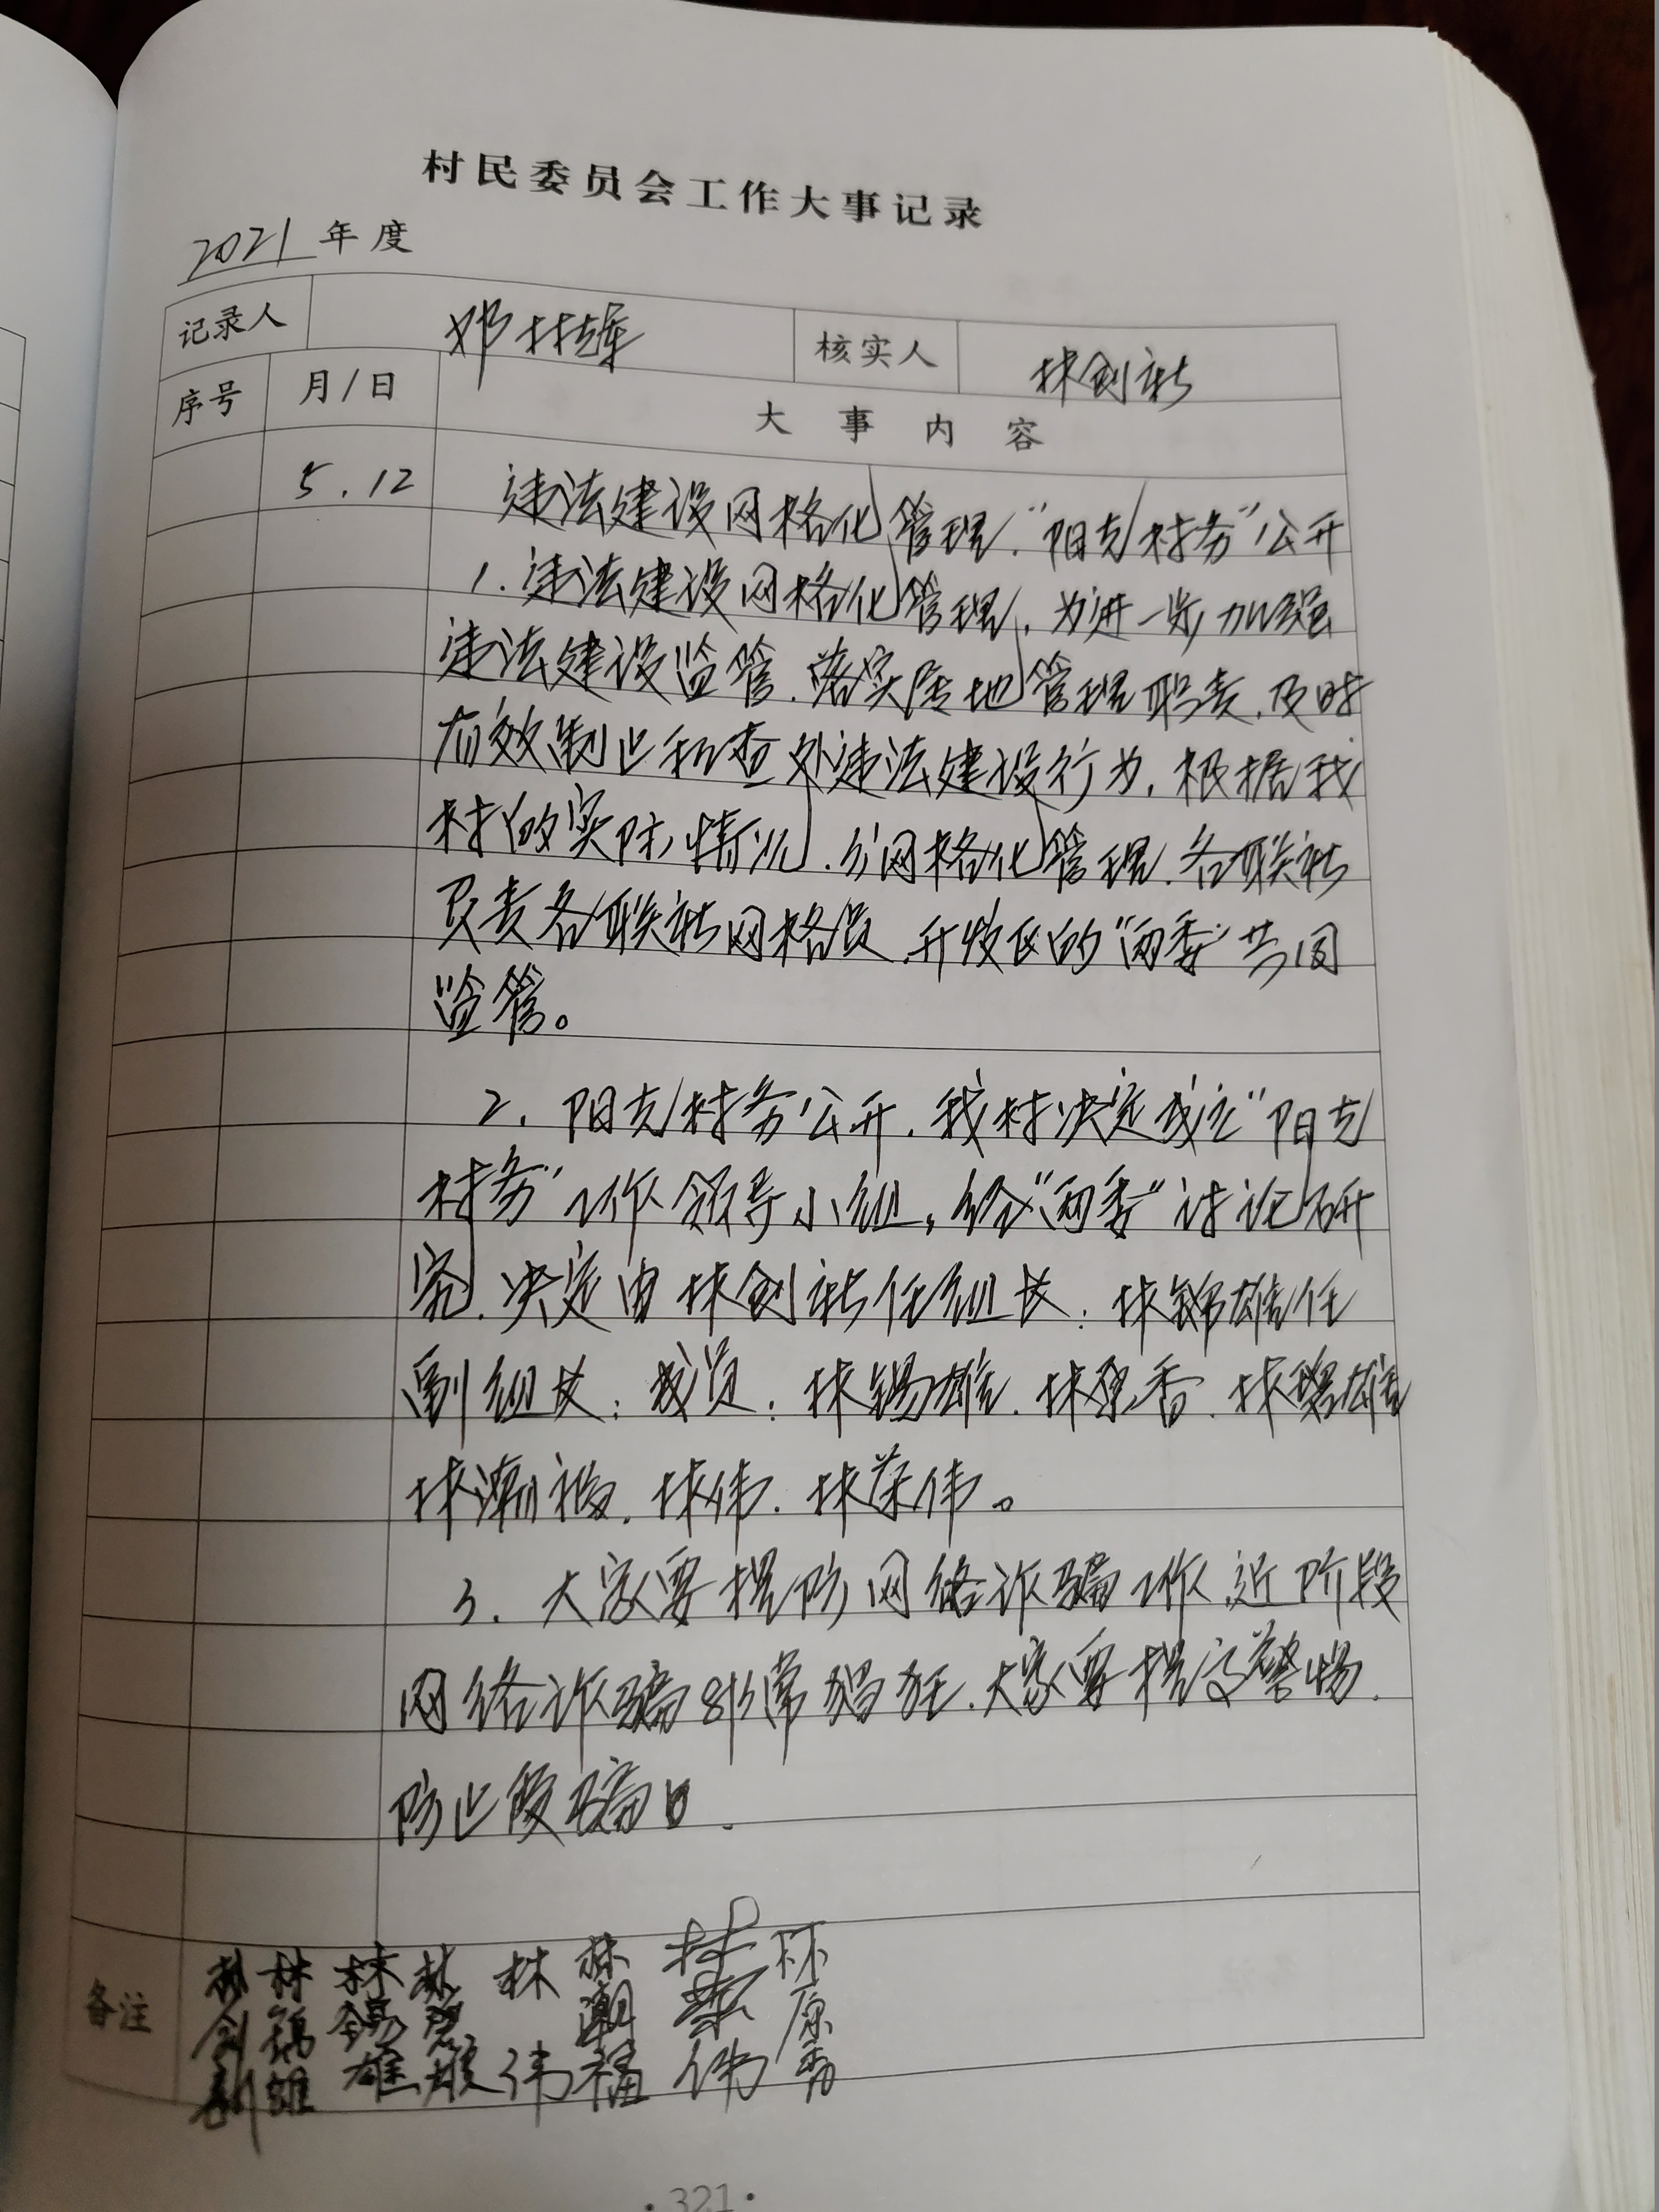 村民委员会工作大事记录
2021 年度
记录人 邓林辉 核实人 林创新
序号 月/日 大事内容
5.12 违法建设网格化管理."阳光村务"公开
1.违法建设网格化管理,为进一步加强
违法建设监管.落实属地管理职责.及时
有效制止和查处违法建设行为.根据我
村的实际情况.分网格化管理.各联社
负责各联社网格员.片收区的"两委"共同
监管。
2.阳光村务公开.我村决定成立"阳光
村务"工作领导小组,经"两委"讨论研
究.决定由林创新任组长:林锦雄任
副组长:成员:林锡雄.林 香.林 雄
林潮福.林伟.林荣伟。
3.大家要提防网络诈骗工作.近阶段
网络诈骗非常猖狂.大家要提高警惕.
防止受骗.
备注 林创新 林锦雄 林锡雄 林 林伟 林潮福 林荣伟 林
·321·